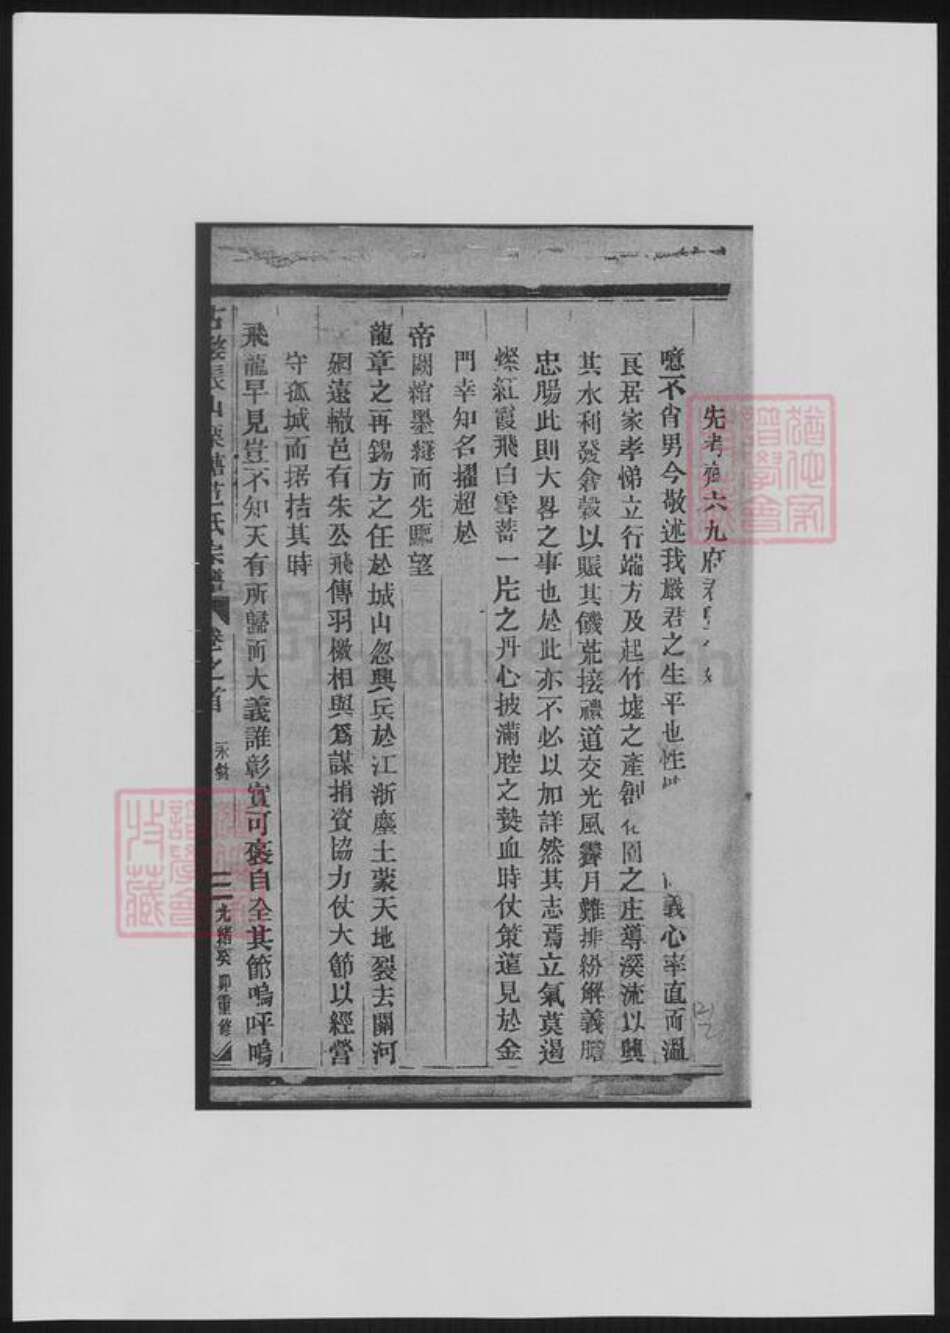 先考 六九府君
噫不肖男今敬述我嚴君之生平也性 義心率直而溫
良居家孝悌立行端方及起竹墟之產創 園之庄導溪流以興
其水利發倉穀以賑其饑荒接禮道交光風霽月難排紛解義膽
忠腸此則大畧之事也於此亦不必以加詳然其志焉立氣莫遏
燦紅霞飛白雪菩一片之丹心披滿腔之熱血時仗策遠見於金
門幸知名擢超於
帝闕綰墨縫而先驅望
龍章之再錫方之任於城山忽興兵於江浙塵土蒙天地裂去關河
網遠轍邑有朱公飛傳羽檄相與為謀捐資協力仗大節以經營
守孤城而拮据其時
飛龍早見豈不知天有所歸而大義誰彰實可褒自全其節嗚呼嗚
張山栗樹范氏宗譜 卷之首 永 三 光緒癸卯重修
譜學會
譜學會
收藏
FamilySearch